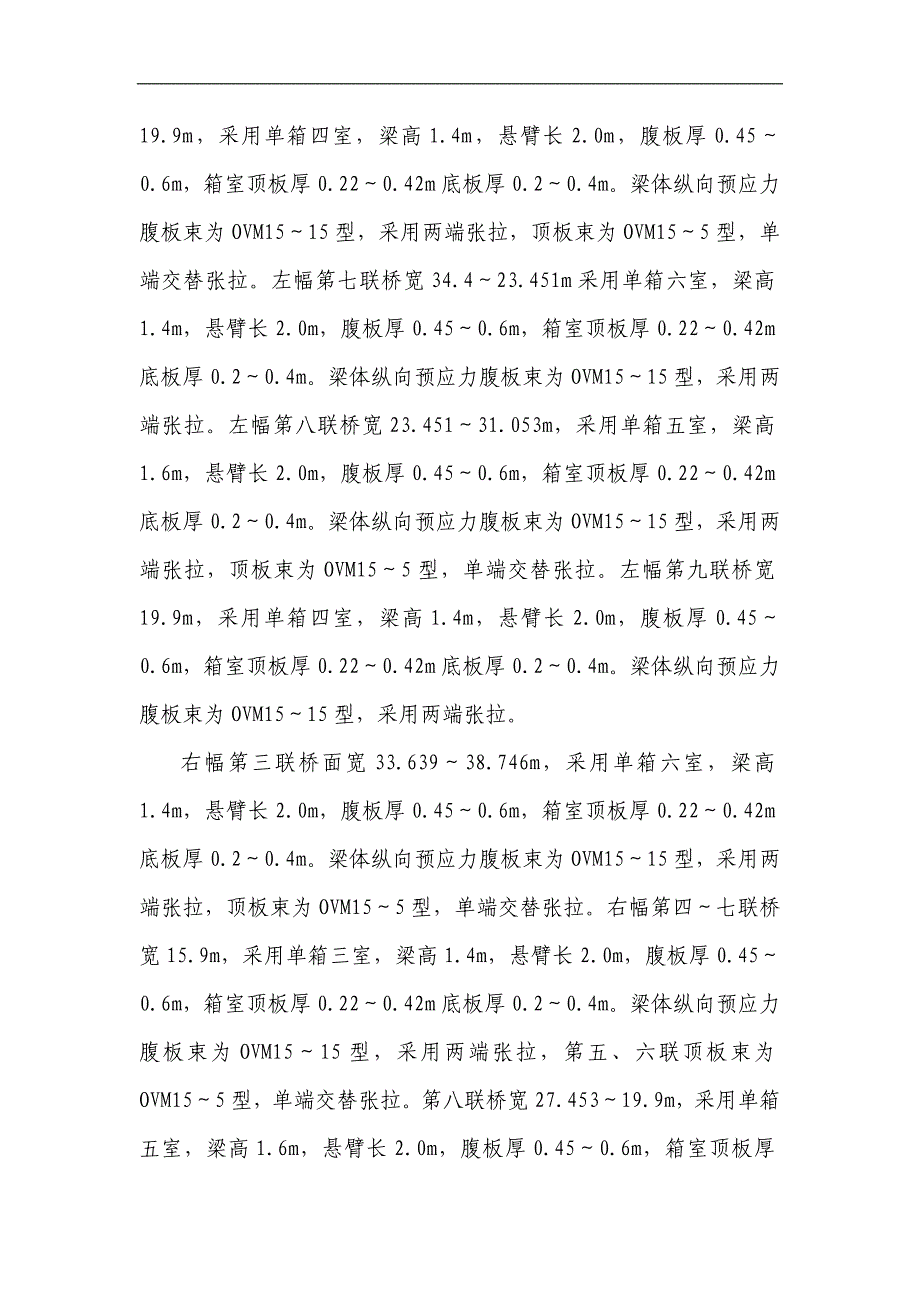 19.9m，采用单箱四室，梁高1.4m，悬臂长2.0m，腹板厚0.45～
0.6m，箱室顶板厚0.22～0.42m底板厚0.2～0.4m。梁体纵向预应力
腹板束为OVM15～15型，采用两端张拉，顶板束为OVM15～5型，单
端交替张拉。左幅第七联桥宽34.4～23.451m采用单箱六室，梁高
1.4m，悬臂长2.0m，腹板厚0.45～0.6m，箱室顶板厚0.22～0.42m
底板厚0.2～0.4m。梁体纵向预应力腹板束为OVM15～15型，采用两
端张拉。左幅第八联桥宽23.451～31.053m，采用单箱五室，梁高
1.6m，悬臂长2.0m，腹板厚0.45～0.6m，箱室顶板厚0.22～0.42m
底板厚0.2～0.4m。梁体纵向预应力腹板束为OVM15～15型，采用两
端张拉，顶板束为OVM15～5型，单端交替张拉。左幅第九联桥宽
19.9m，采用单箱四室，梁高1.4m，悬臂长2.0m，腹板厚0.45～
0.6m，箱室顶板厚0.22～0.42m底板厚0.2～0.4m。梁体纵向预应力
腹板束为OVM15～15型，采用两端张拉。
右幅第三联桥面宽33.639～38.746m，采用单箱六室，梁高
1.4m，悬臂长2.0m，腹板厚0.45～0.6m，箱室顶板厚0.22～0.42m
底板厚0.2～0.4m。梁体纵向预应力腹板束为OVM15～15型，采用两
端张拉，顶板束为OVM15～5型，单端交替张拉。右幅第四～七联桥
宽15.9m，采用单箱三室，梁高1.4m，悬臂长2.0m，腹板厚0.45～
0.6m，箱室顶板厚0.22～0.42m底板厚0.2～0.4m。梁体纵向预应力
腹板束为OVM15～15型，采用两端张拉，第五、六联顶板束为
OVM15～5型，单端交替张拉。第八联桥宽27.453～19.9m，采用单箱
五室，梁高1.6m，悬臂长2.0m，腹板厚0.45～0.6m，箱室顶板厚